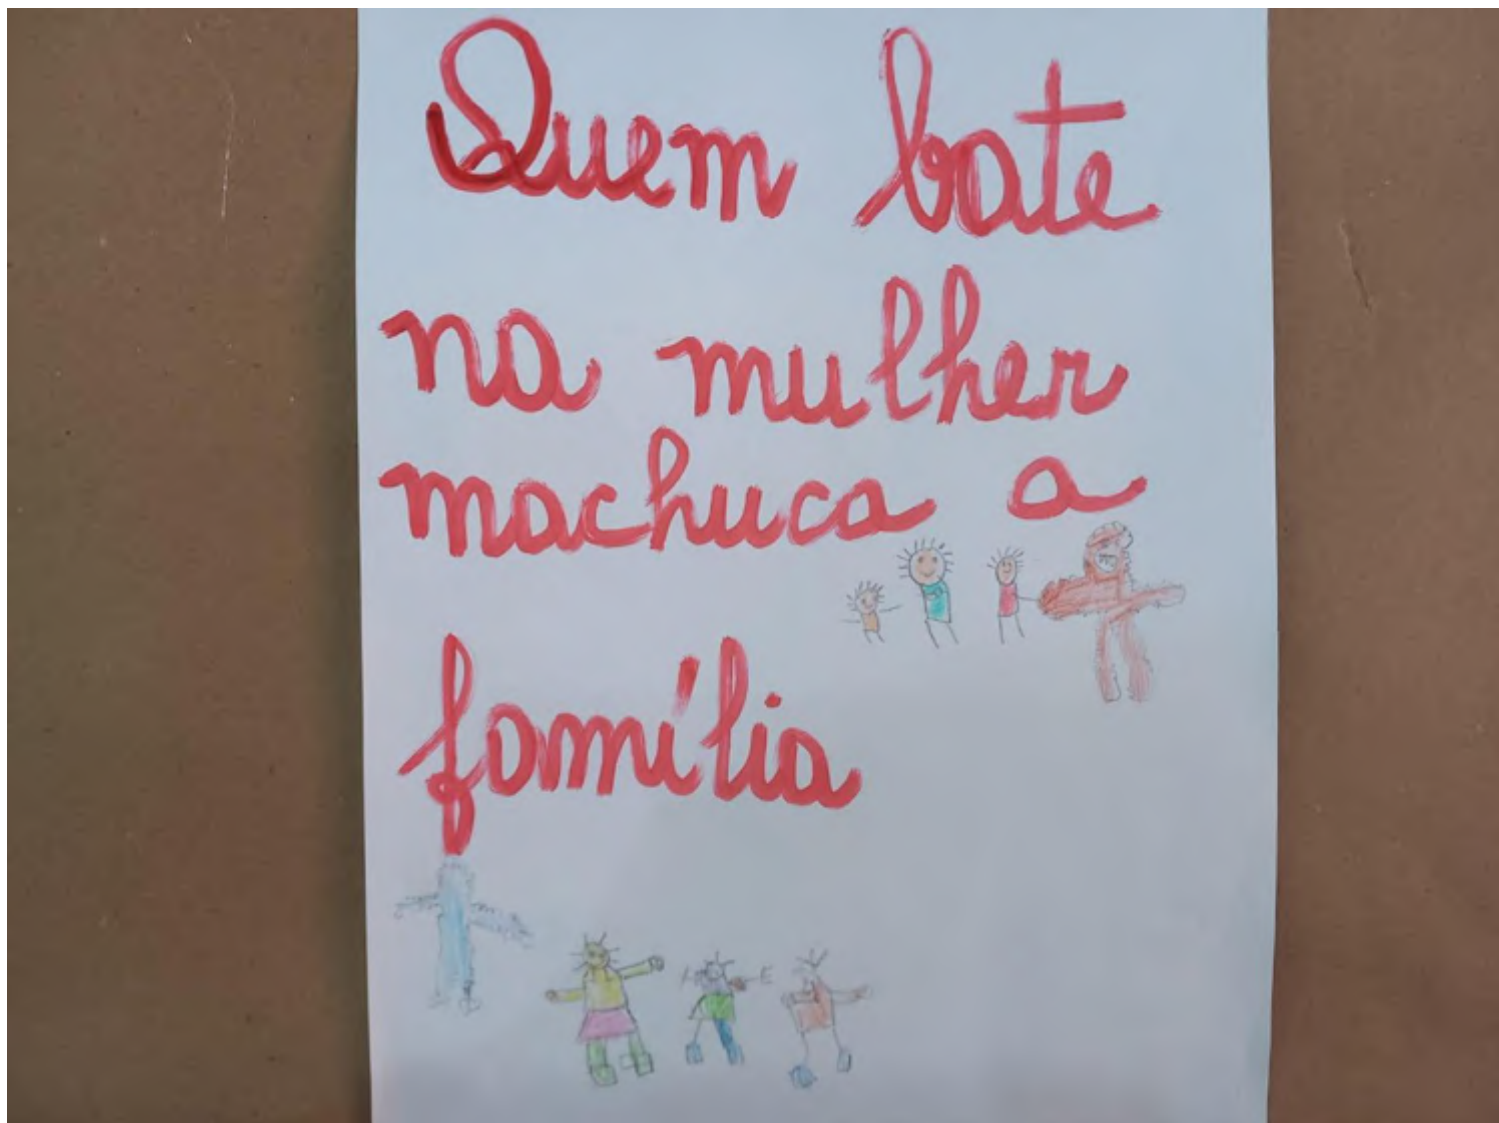 Quem bate
na mulher
machuca a
família